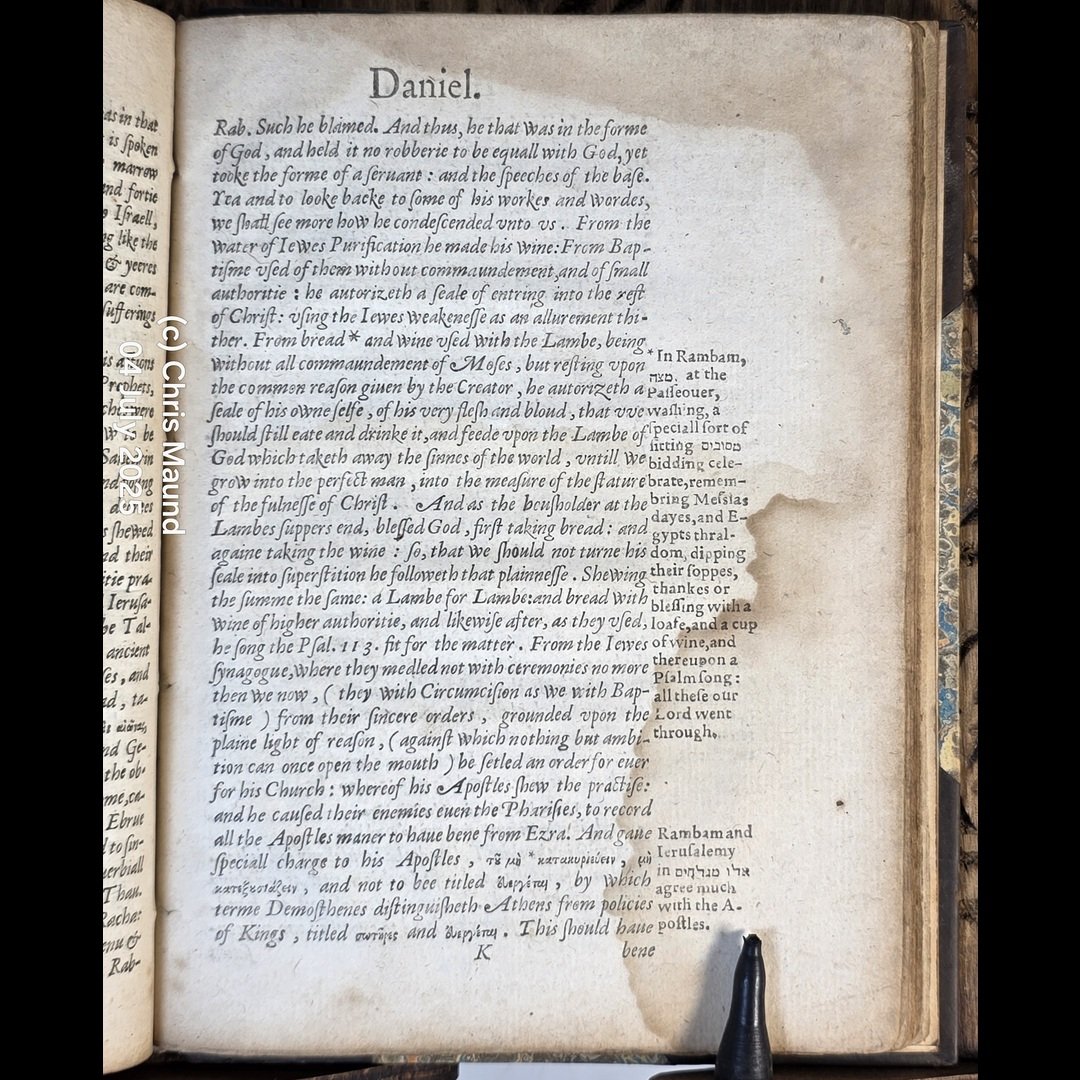 as in that
is ſpoken
marrow
nd fortie
Iſraell,
like the
& yeeres
are com-
ſufferings
Prophets,
ſhewed
and their
Ieruſa-
ancient
and Ge-
the ob-
Ebrue
Rab-
Daniel.
Rab. Such he blamed. And thus, he that was in the forme
of God, and held it no robberie to be equall with God, yet
tooke the forme of a ſeruant : and the ſpeeches of the baſe.
Yea and to looke backe to ſome of his workes and wordes,
we ſhall ſee more how he condeſcended vnto vs. From the
water of Iewes Purification he made his wine: From Bap-
tiſme vſed of them without commaundement, and of ſmall
authoritie : he autorizeth a ſeale of entring into the reſt
of Chriſt: vſing the Iewes weakeneſſe as an allurement thi-
ther. From bread * and wine vſed with the Lambe, being
without all commaundement of Moſes, but reſting vpon
the common reaſon giuen by the Creator, he autorizeth a
ſeale of his owne ſelfe, of his very fleſh and bloud, that vve
ſhould ſtill eate and drinke it, and feede vpon the Lambe of
God which taketh away the ſinnes of the world, vntill we
grow into the perfect man, into the meaſure of the ſtature
of the fulneſſe of Chriſt. And as the houſholder at the
Lambes ſuppers end, bleſſed God, firſt taking bread : and
againe taking the wine : ſo, that we ſhould not turne his
ſeale into ſuperſtition he followeth that plainneſſe. Shewing
the ſumme the ſame: a Lambe for Lambe: and bread with
wine of higher authoritie, and likewiſe after, as they vſed,
he ſong the Pſal. 113. fit for the matter. From the Iewes
ſynagogue, where they medled not with ceremonies no more
then we now, ( they with Circumciſion as we with Bap-
tiſme ) from their ſincere orders, grounded vpon the
plaine light of reaſon, ( againſt which nothing but ambi-
tion can once open the mouth ) he ſetled an order for euer
for his Church : whereof his Apoſtles ſhew the practiſe:
and he cauſed their enemies euen the Phariſies, to record
all the Apoſtles maner to haue bene from Ezra. And gaue
ſpeciall charge to his Apoſtles, τȣ͂ μὴ * κατακυριεύειν, μὴ
κατεξȣσιάζειν, and not to bee titled ἐυεργέται, by which
terme Demoſthenes diſtinguiſheth Athens from policies
of Kings, titled σωτῆρες and ἐυεργέται. This ſhould haue
K bene
* In Rambam,
מצה. at the
Paſſeouer,
waſhing, a
ſpeciall ſort of
ſitting מסובים
bidding cele-
brate, remem-
bring Meſſias
dayes, and E-
gypts thral-
dom, dipping
their ſoppes,
thankes or
bleſſing with a
loafe, and a cup
of wine, and
thereupon a
Pſalm ſong :
all theſe our
Lord went
through.
Rambam and
Ieruſalemy
in אלו מגלחים
agree much
with the A-
poſtles.
(c) Chris Maund
04 July 2025